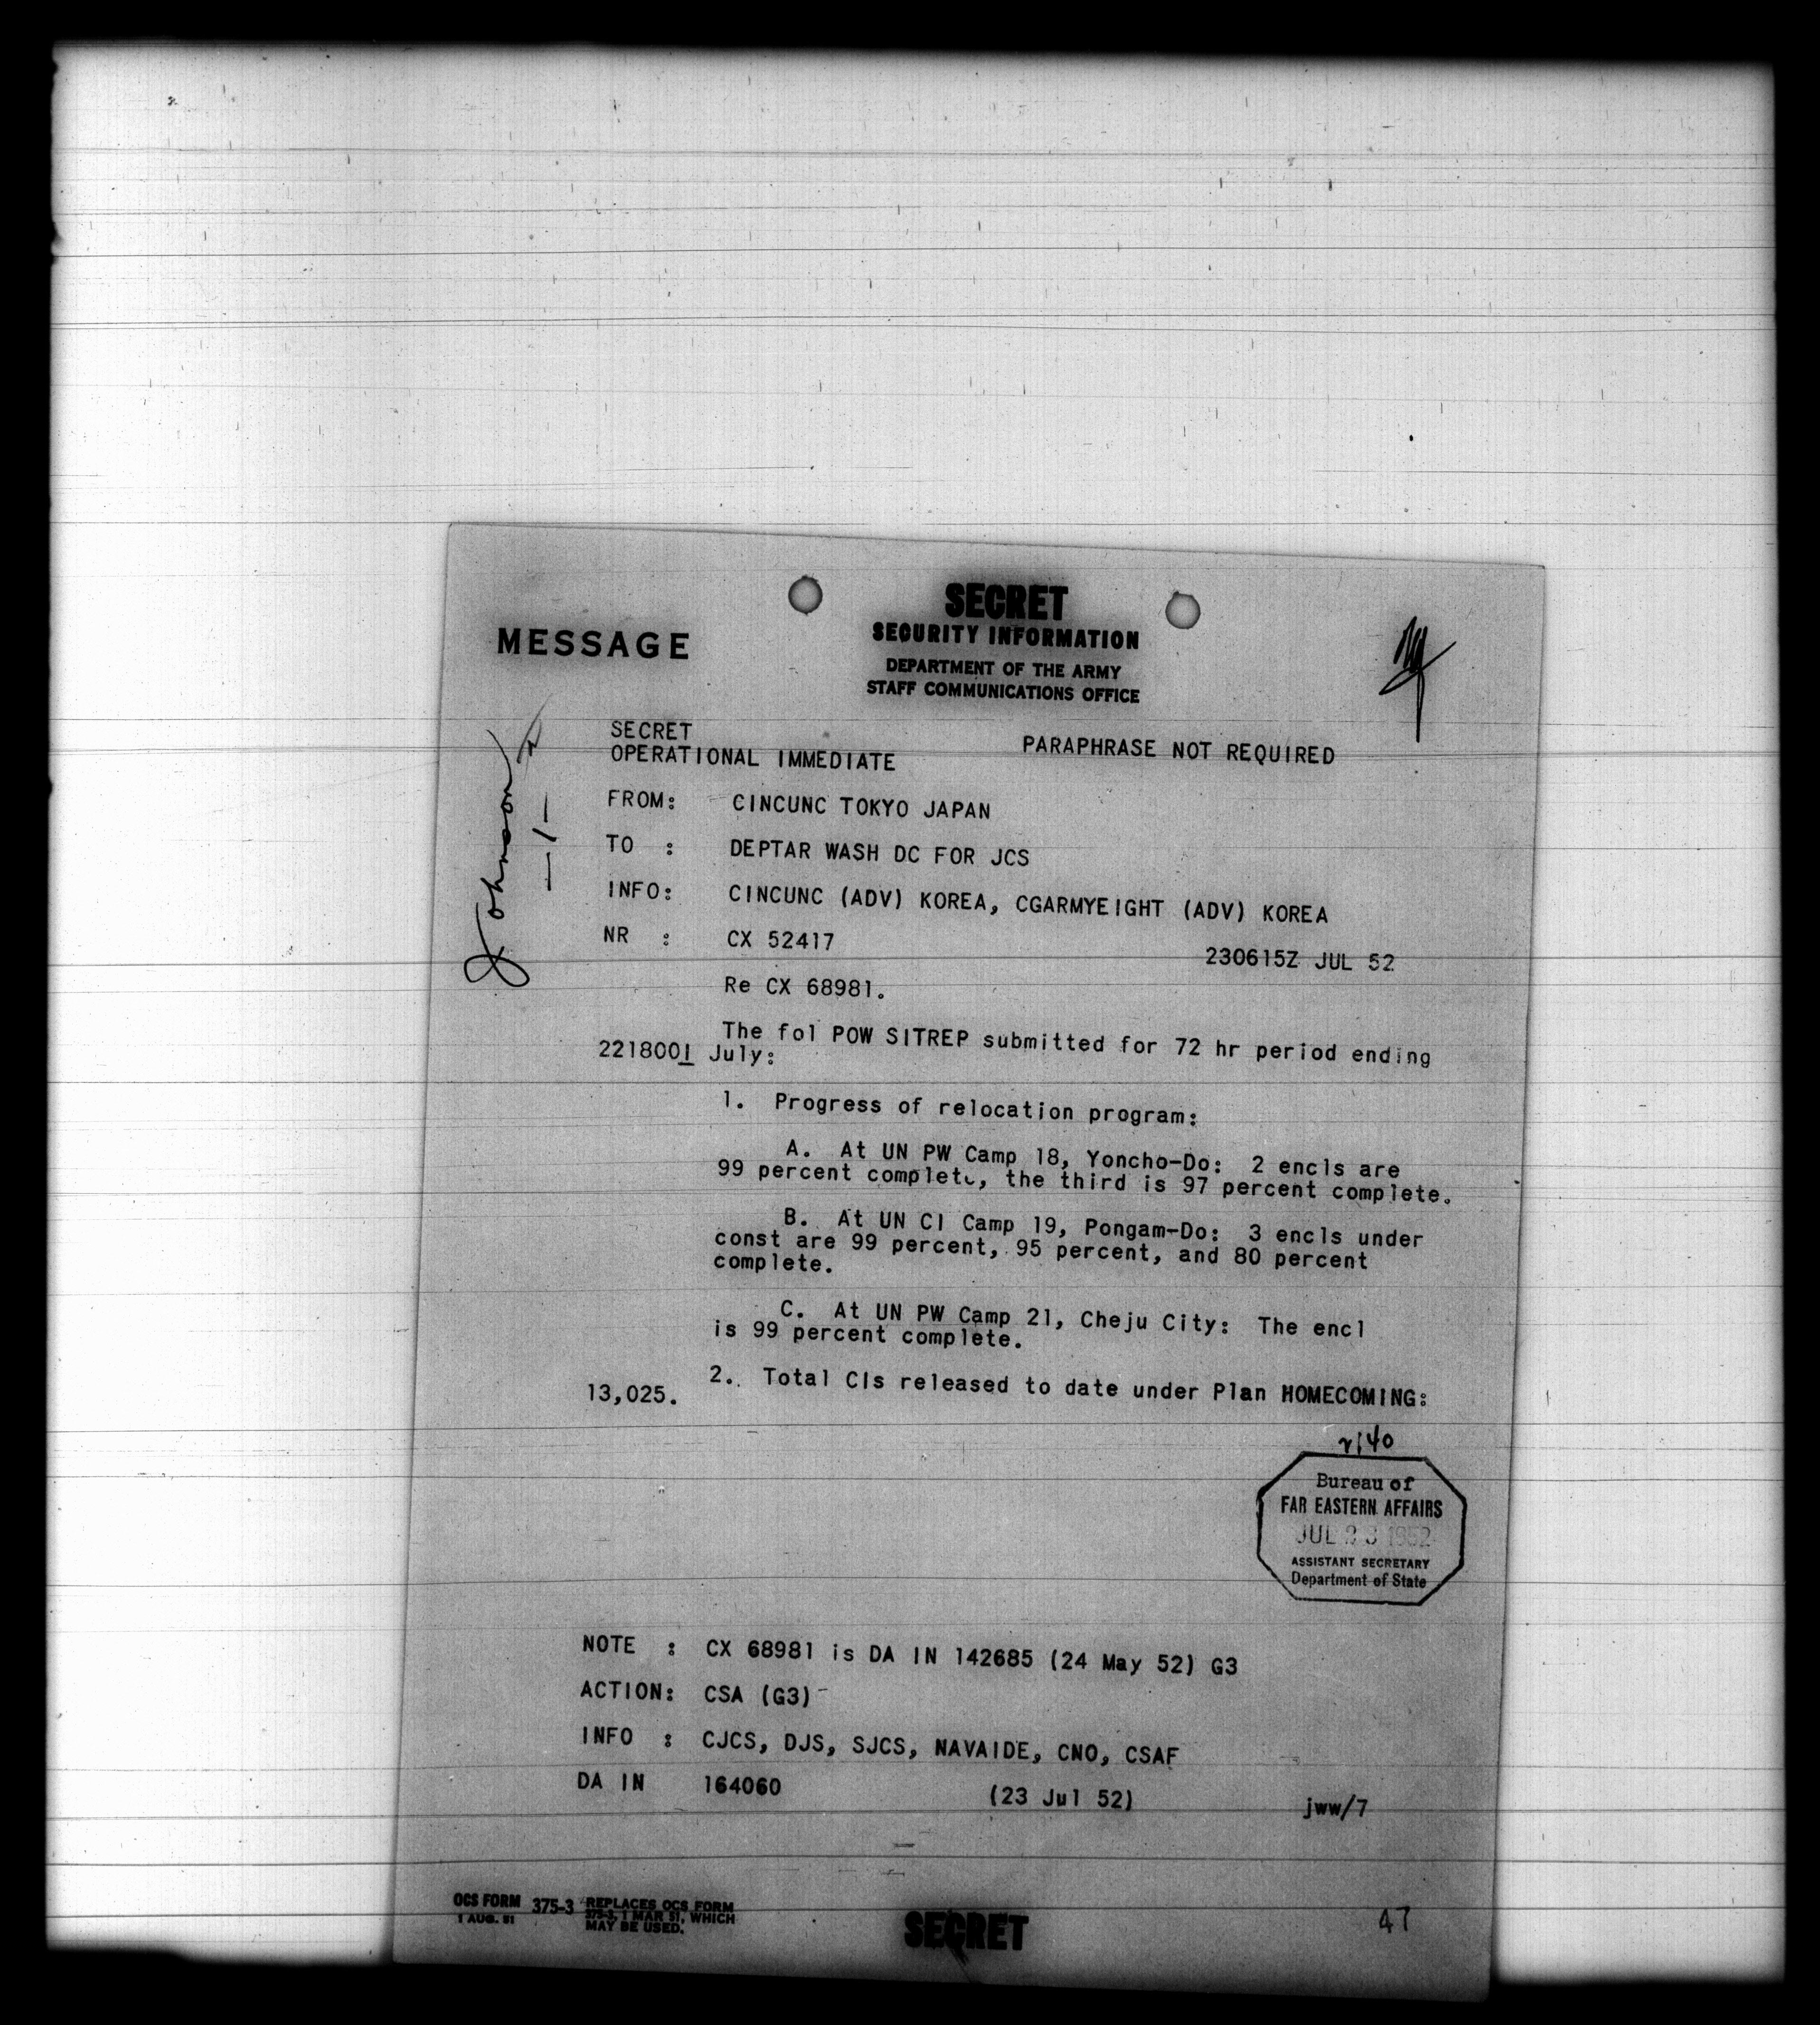 MESSAGE
SECRET
SECURITY INFORMATION
DEPARTMENT OF THE ARMY
STAFF COMMUNICATIONS OFFICE
Johnson
-1-
SECRET
OPERATIONAL IMMEDIATE PARAPHRASE NOT REQUIRED
FROM: CINCUNC TOKYO JAPAN
TO : DEPTAR WASH DC FOR JCS
INFO: CINCUNC (ADV) KOREA, CGARMYEIGHT (ADV) KOREA
NR : CX 52417 230615Z JUL 52
Re CX 68981.
The fol POW SITREP submitted for 72 hr period ending
221800I July:
1. Progress of relocation program:
A. At UN PW Camp 18, Yoncho-Do: 2 encls are
99 percent complete, the third is 97 percent complete.
B. At UN CI Camp 19, Pongam-Do: 3 encls under
const are 99 percent, 95 percent, and 80 percent
complete.
C. At UN PW Camp 21, Cheju City: The encl
is 99 percent complete.
2. Total CIs released to date under Plan HOMECOMING:
13,025.
Bureau of
FAR EASTERN AFFAIRS
JUL 23 1952
ASSISTANT SECRETARY
Department of State
NOTE : CX 68981 is DA IN 142685 (24 May 52) G3
ACTION: CSA (G3)
INFO : CJCS, DJS, SJCS, NAVAIDE, CNO, CSAF
DA IN 164060 (23 Jul 52) jww/7
OCS FORM 375-3 REPLACES OCS FORM
1 AUG. 51 375-3, 1 MAR 51, WHICH
MAY BE USED.
SECRET
47